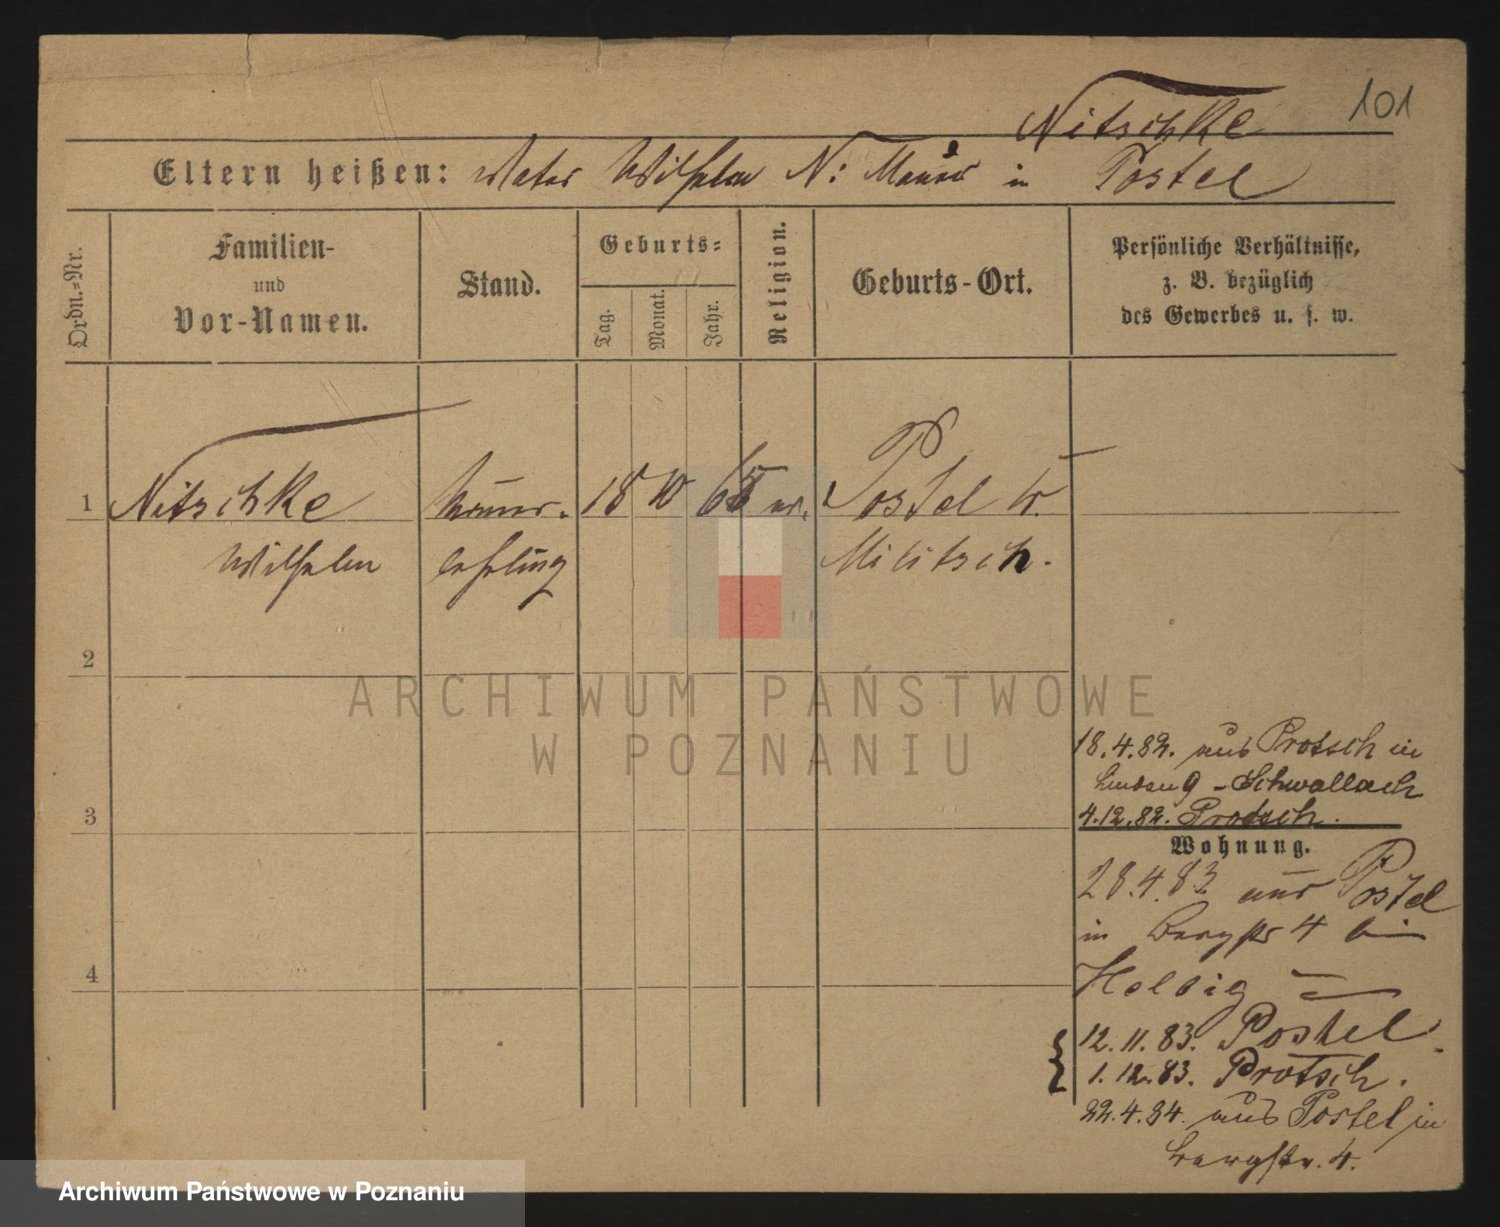 101
Nitschke
Eltern heißen: Vater Wilhelm N: Maurer in Postel
Ordn.=Nr.
Familien-
und
Vor-Namen.
Stand.
Geburts=
Tag.
Monat.
Jahr.
Religion.
Geburts-Ort.
Persönliche Verhältnisse,
z. B. bezüglich
des Gewerbes u. s. w.
1 Nitschke Maurer- 18 10 65 ev. Postel Kr.
Wilhelm lehrling Militsch.
2
3
4
18.4.82. aus Protsch in
9 - Schwallach
4.12.82. Protsch.
Wohnung.
28.4.83. aus Postel
in Bergstr 4 bei
Helbig
12.11.83. Postel.
1.12.83. Protsch.
22.4.84. aus Postel in
Bergstr. 4.
ARCHIWUM PAŃSTWOWE
W POZNANIU
Archiwum Państwowe w Poznaniu